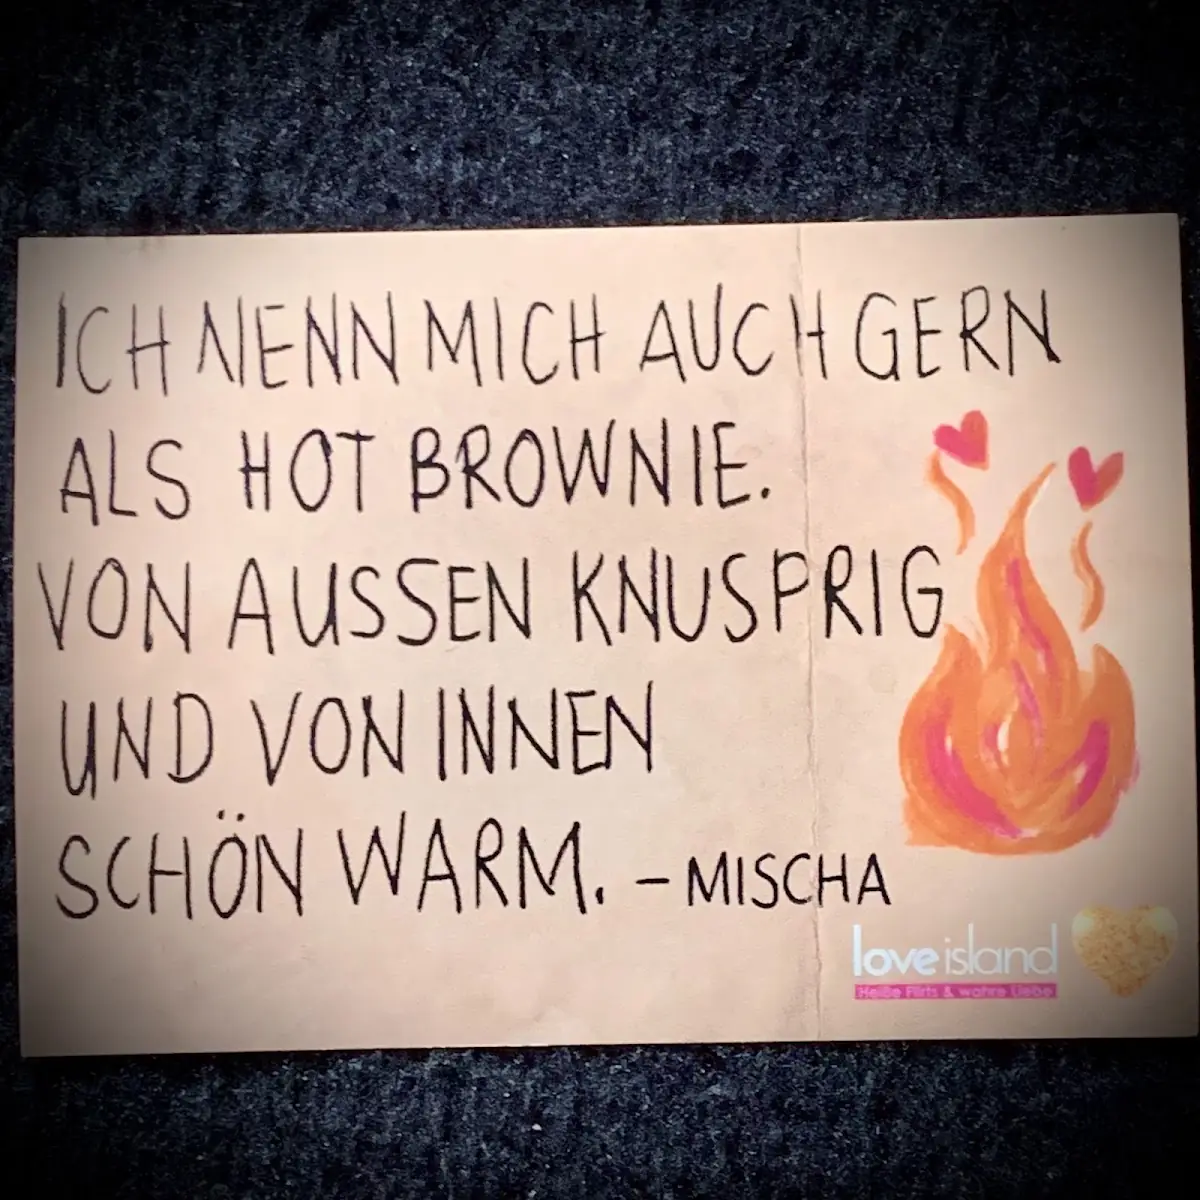 ICH NENN MICH AUCH GERN
ALS HOT BROWNIE.
VON AUSSEN KNUSPRIG
UND VON INNEN
SCHÖN WARM. – MISCHA
love island
Heiße Flirts & wahre Liebe